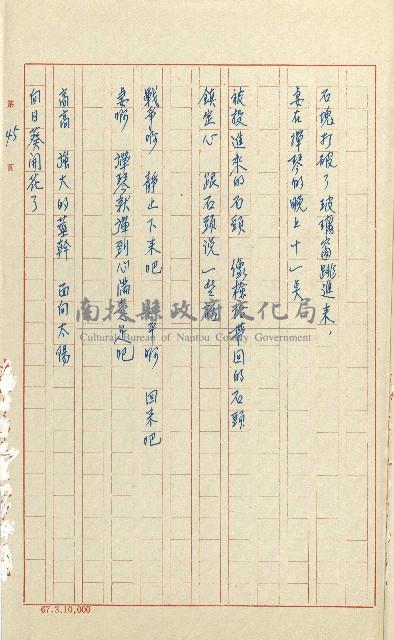 石塊打破了玻璃窗跳進來，
妻在彈琴的晚上十一点
被投進來的石頭　像檢波帶回的石頭
鎮坐心　跟石頭说一些話
戰爭啊　靜止下來吧　和平啊　回來吧
妻啊　彈琴就彈到心滿意足吧
高高　強大的莖幹　面向太陽
向日葵開花了
第 45 頁
南投縣政府文化局
Cultural Bureau of Nantou County Government
67.3.10,000